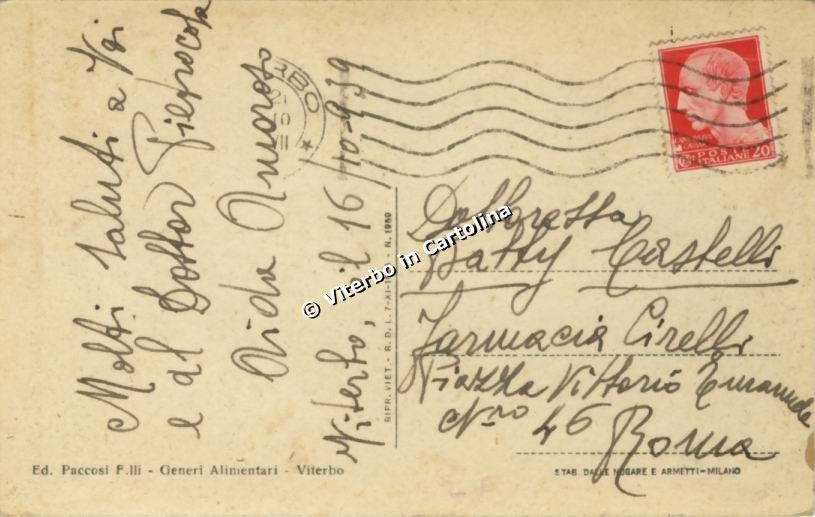 Molti saluti a Voi
e al Dottor
Aida Amoroso
Viterbo, il 16/10-939
RBO
POSTE
ITALIANE 20
Dottoressa
Batty Castelli
Farmacia Cirelli
Piazza Vittorio Emanuele
Nro 46
Roma
© Viterbo in Cartolina
RIPR. VIET. - R. D. L. 7-XI-
- N. 1950
Ed. Paccosi F.lli - Generi Alimentari - Viterbo
STAB. DALLE NOGARE E ARMETTI - MILANO